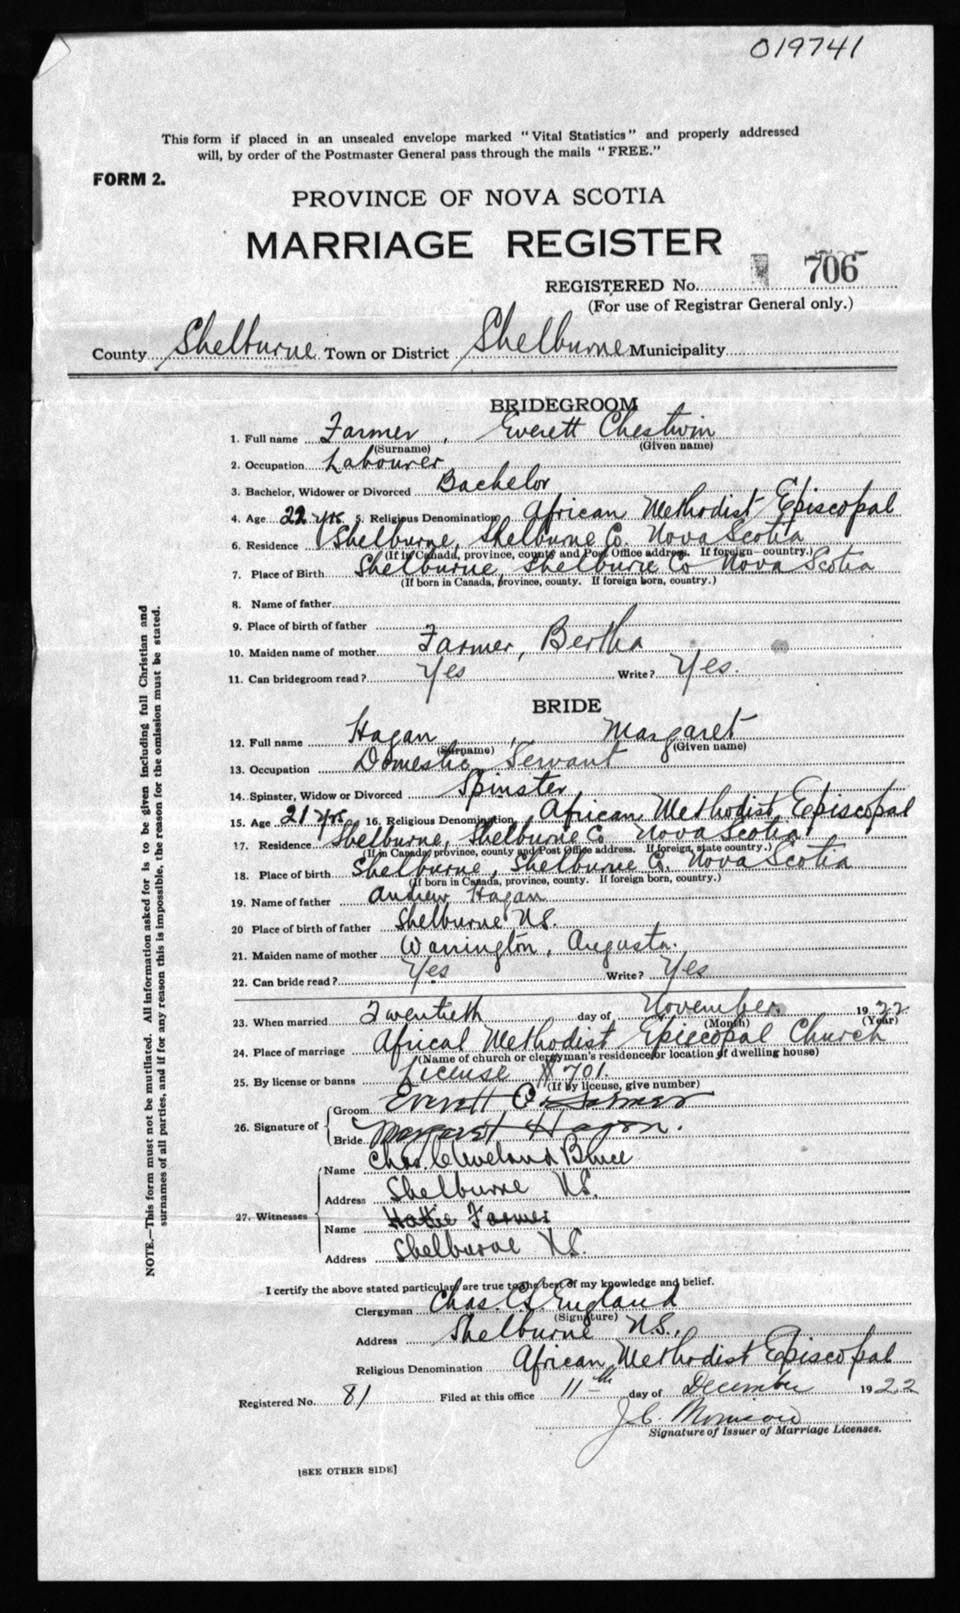 019741
This form if placed in an unsealed envelope marked "Vital Statistics" and properly addressed
will, by order of the Postmaster General pass through the mails "FREE."
FORM 2.
PROVINCE OF NOVA SCOTIA
MARRIAGE REGISTER
REGISTERED No. 706
(For use of Registrar General only.)
County Shelburne Town or District Shelburne Municipality
BRIDEGROOM
1. Full name Farmer, Everett Chestwin
(Surname) (Given name)
2. Occupation Labourer
3. Bachelor, Widower or Divorced Bachelor
4. Age 22 yrs 5. Religious Denomination African Methodist Episcopal
6. Residence Shelburne, Shelburne Co. Nova Scotia
(If in Canada, province, county and Post Office address. If foreign country.)
7. Place of Birth Shelburne, Shelburne Co Nova Scotia
(If born in Canada, province, county. If foreign born, country.)
8. Name of father
9. Place of birth of father
10. Maiden name of mother Farmer, Bertha
11. Can bridegroom read? Yes Write? Yes.
BRIDE
12. Full name Hagan, Margaret
(Surname) (Given name)
13. Occupation Domestic Servant
14. Spinster, Widow or Divorced Spinster
15. Age 21 yrs 16. Religious Denomination African Methodist Episcopal
17. Residence Shelburne, Shelburne Co Nova Scotia
(If in Canada, province, county and Post Office address. If foreign, state country.)
18. Place of birth Shelburne, Shelburne Co. Nova Scotia
(If born in Canada, province, county. If foreign born, country.)
19. Name of father Andrew Hagan
20 Place of birth of father Shelburne N.S.
21. Maiden name of mother Warrington, Augusta.
22. Can bride read? Yes Write? Yes
23. When married Twentieth day of November. 1922
(Month) (Year)
24. Place of marriage Africal Methodist Episcopal Church
(Name of church or clergyman's residence or location of dwelling house)
25. By license or banns License # 701.
(If by license, give number)
26. Signature of Groom Everett C Farmer
Bride Margaret Hagan.
27. Witnesses Name Chas. Cleveland Bruce
Address Shelburne N.S.
Name Hattie Farmer
Address Shelburne N.S.
I certify the above stated particulars are true to the best of my knowledge and belief.
Clergyman Chas. England
(Signature)
Address Shelburne N.S.,
Religious Denomination African Methodist Episcopal
Registered No. 81 Filed at this office 11th day of December 1922
J.C. Morrison
Signature of Issuer of Marriage Licenses.
[SEE OTHER SIDE]
NOTE.—This form must not be mutilated. All information asked for is to be given including full Christian and
surnames of all parties, and if for any reason this is impossible, the reason for the omission must be stated.